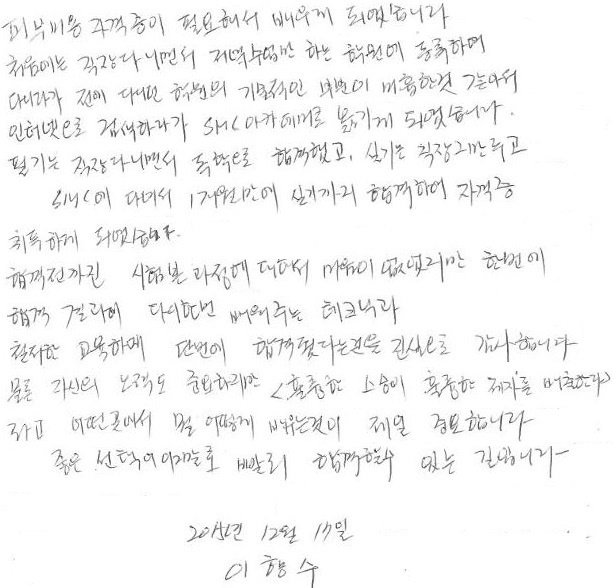 피부미용 자격증이 필요해서 배우게 되었습니다
처음에는 직장다니면서 저녁수업만 하는 학원에 등록하여
다니다가 전에 다니던 학원의 기술적인 부분이 미흡한것 같아서
인터넷으로 검색하다가 SMC아카데미로 옮기게 되었습니다.
필기는 직장다니면서 독학으로 합격했고, 실기는 직장그만두고
SMC에 다녀서 1개월만에 실기까지 합격하여 자격증
취득하게 되었습니다.
합격전까진 시험본 과정에 대해서 믿음이 없었지만 한번에
합격 결과에 다시한번 배워주는 테크닉과
철저한 교육하에 단번에 합격됐다는것을 진심으로 감사합니다
물론 자신의 노력도 중요하지만 <훌륭한 스승이 훌륭한 제자를 배출한다>
라고 어떤곳에서 뭘 어떻게 배우는것이 제일 중요합니다
좋은 선택이야말로 빠르게 합격할수 있는 길입니다~
2015년 12월 17일
이형수